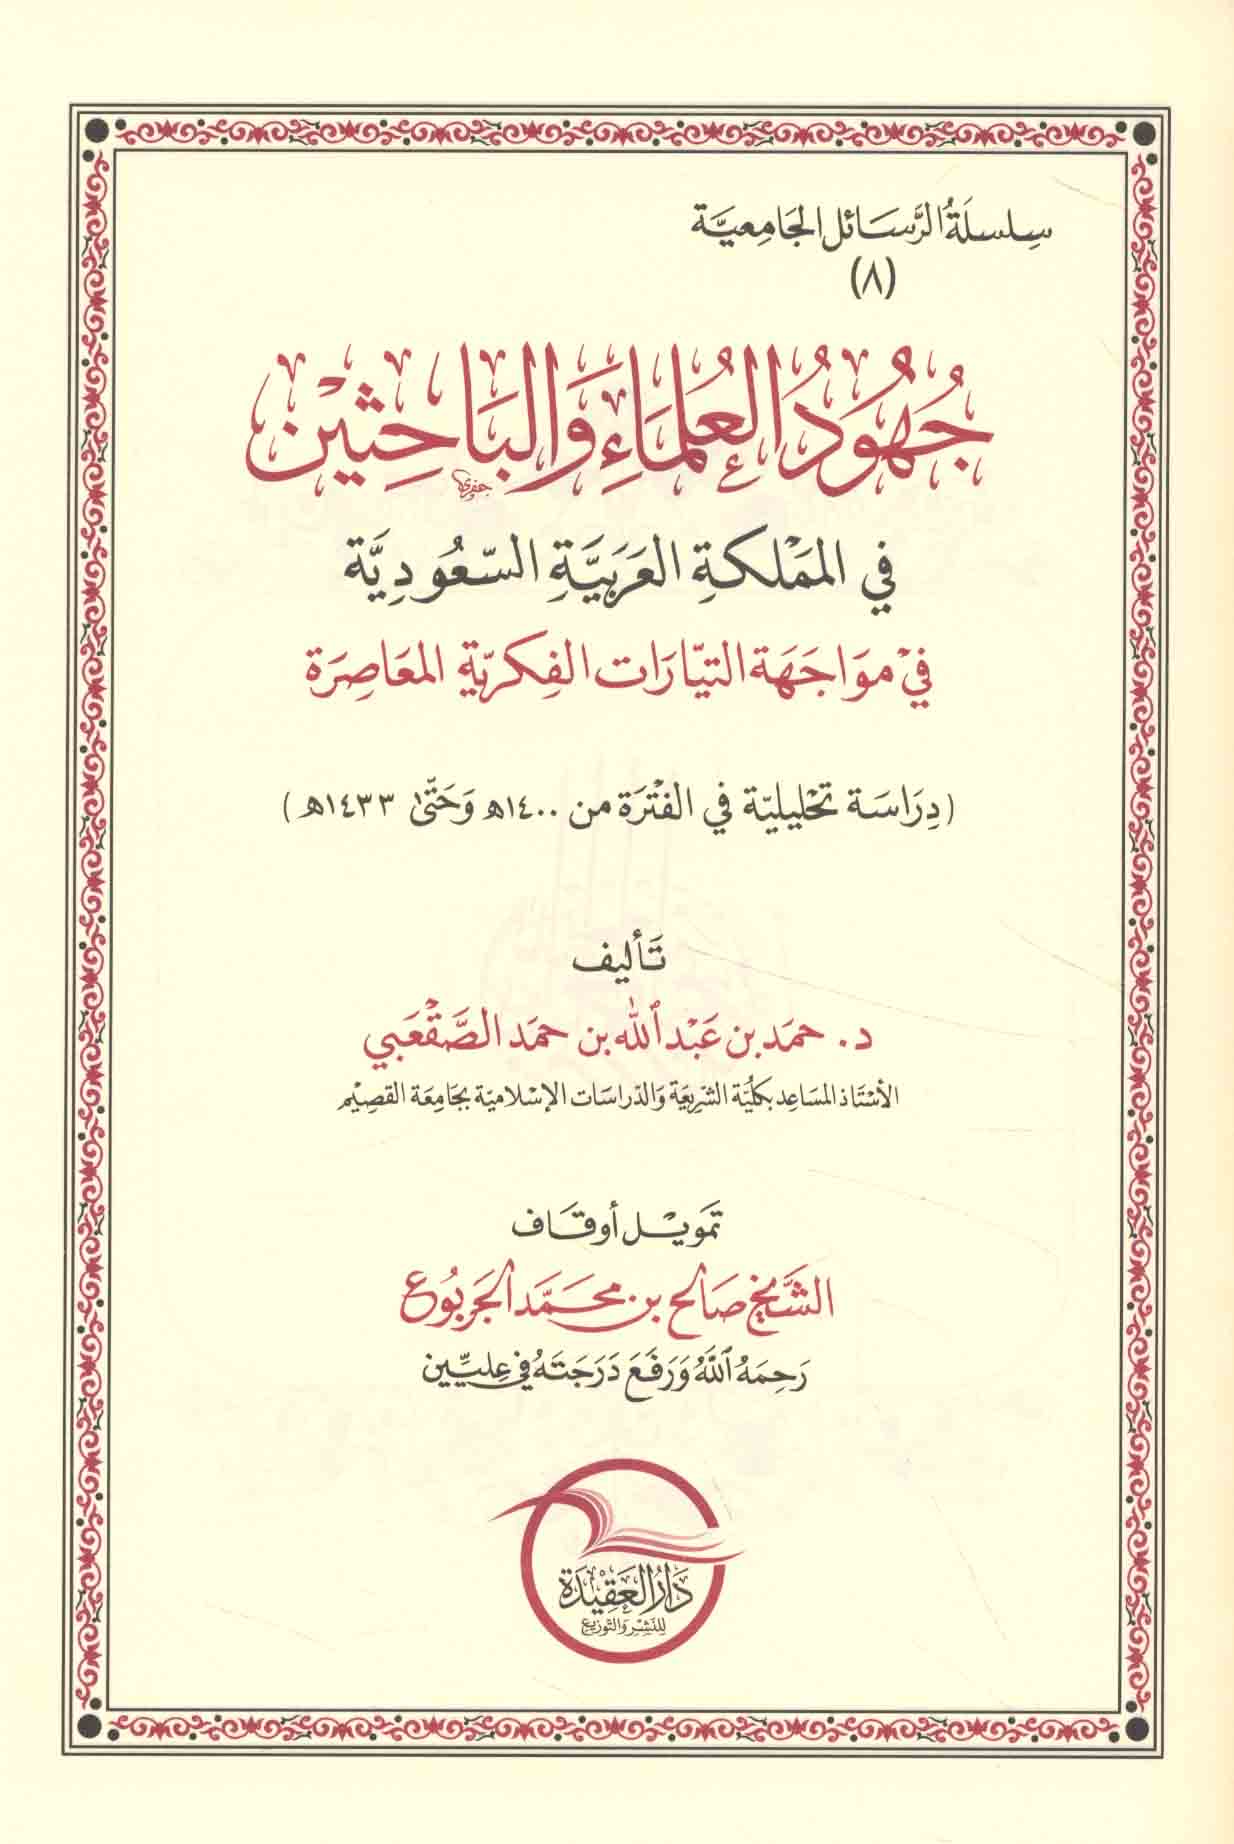 سِلسِلَةُ الرَّسَائل الجَامِعيَّة
(٨)
جُهُودُ العُلمَاءِ وَالبَاحِثيْن
في المَمْلكةِ العَرَبيَّةِ السّعُودِيَّة
فيْ موَاجَهَة التيّارَات الفِكريّة المعَاصِرَة
(دِرَاسَة تحْليليّة في الفتْرَة من ١٤٠٠ه وَحَتّىٰ ١٤٣٣ه)
تَأليف
د. حمَد بن عَبْد ٱلله بن حمَد الصَّقعَبي
الأسْتَاذ المسَاعِد بكليّة الشّرِيعَة وَالدّراسَات الإسْلاميّة بجَامعَة القصِيْم
تمَويْـل أوقـَاف
الشَّيْخ صَالح بن محمَّد الجَربُوع
رَحِمَهُ ٱللَّهُ وَرَفَعَ دَرَجَتَهُ في عِليِّين
دَارُ العَقِيْدَة
للنَشْر وَالتَوزيع